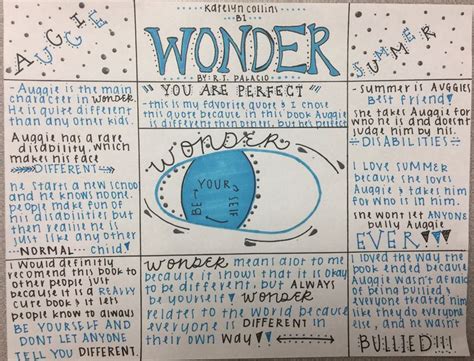 Katelyn Collini
B1
WONDER
BY: R.J. PALACIO
AUGGIE
SUMMER
- Auggie is the main
character in WONDER.
He is quite different
than any other kids.
Auggie has a rare
disability, which
makes his face
DIFFERENT
he starts a new school
and he knows noone.
people make fun of
his disabilities but
then realize he is
just like any other
NORMAL child
"YOU ARE PERFECT"
-this is my favorite quote & I chose
this quote because in this book Auggie
is different then others, but his perfect
WONDER
BE YOUR
SELF
- summer is AUGGIES
Best friend!
she takes Auggie for
who he is and doesnt
judge him by his
DISABILITIES
I love SUMMER
because she loves
Auggie & takes him
for who he is and
she wont let ANYONE
bully Auggie
EVER!!!
I would definitly
recomend this book to
other people just
because it is a REALLY
cute book & it lets
people know to always
BE YOURSELF AND
DONT LET ANYONE
TELL YOU DIFFERENT.
WONDER means alot to me
because it shows that it is okay
to be different, but ALWAYS
be yourself! WONDER
relates to the world because
everyone is DIFFERENT in
their own way
I loved the way the
book ended because
Auggie wasn't afraid
of being bullied &
everyone treated him
like they do everyone
else and he wasn't
BULLIED!!!